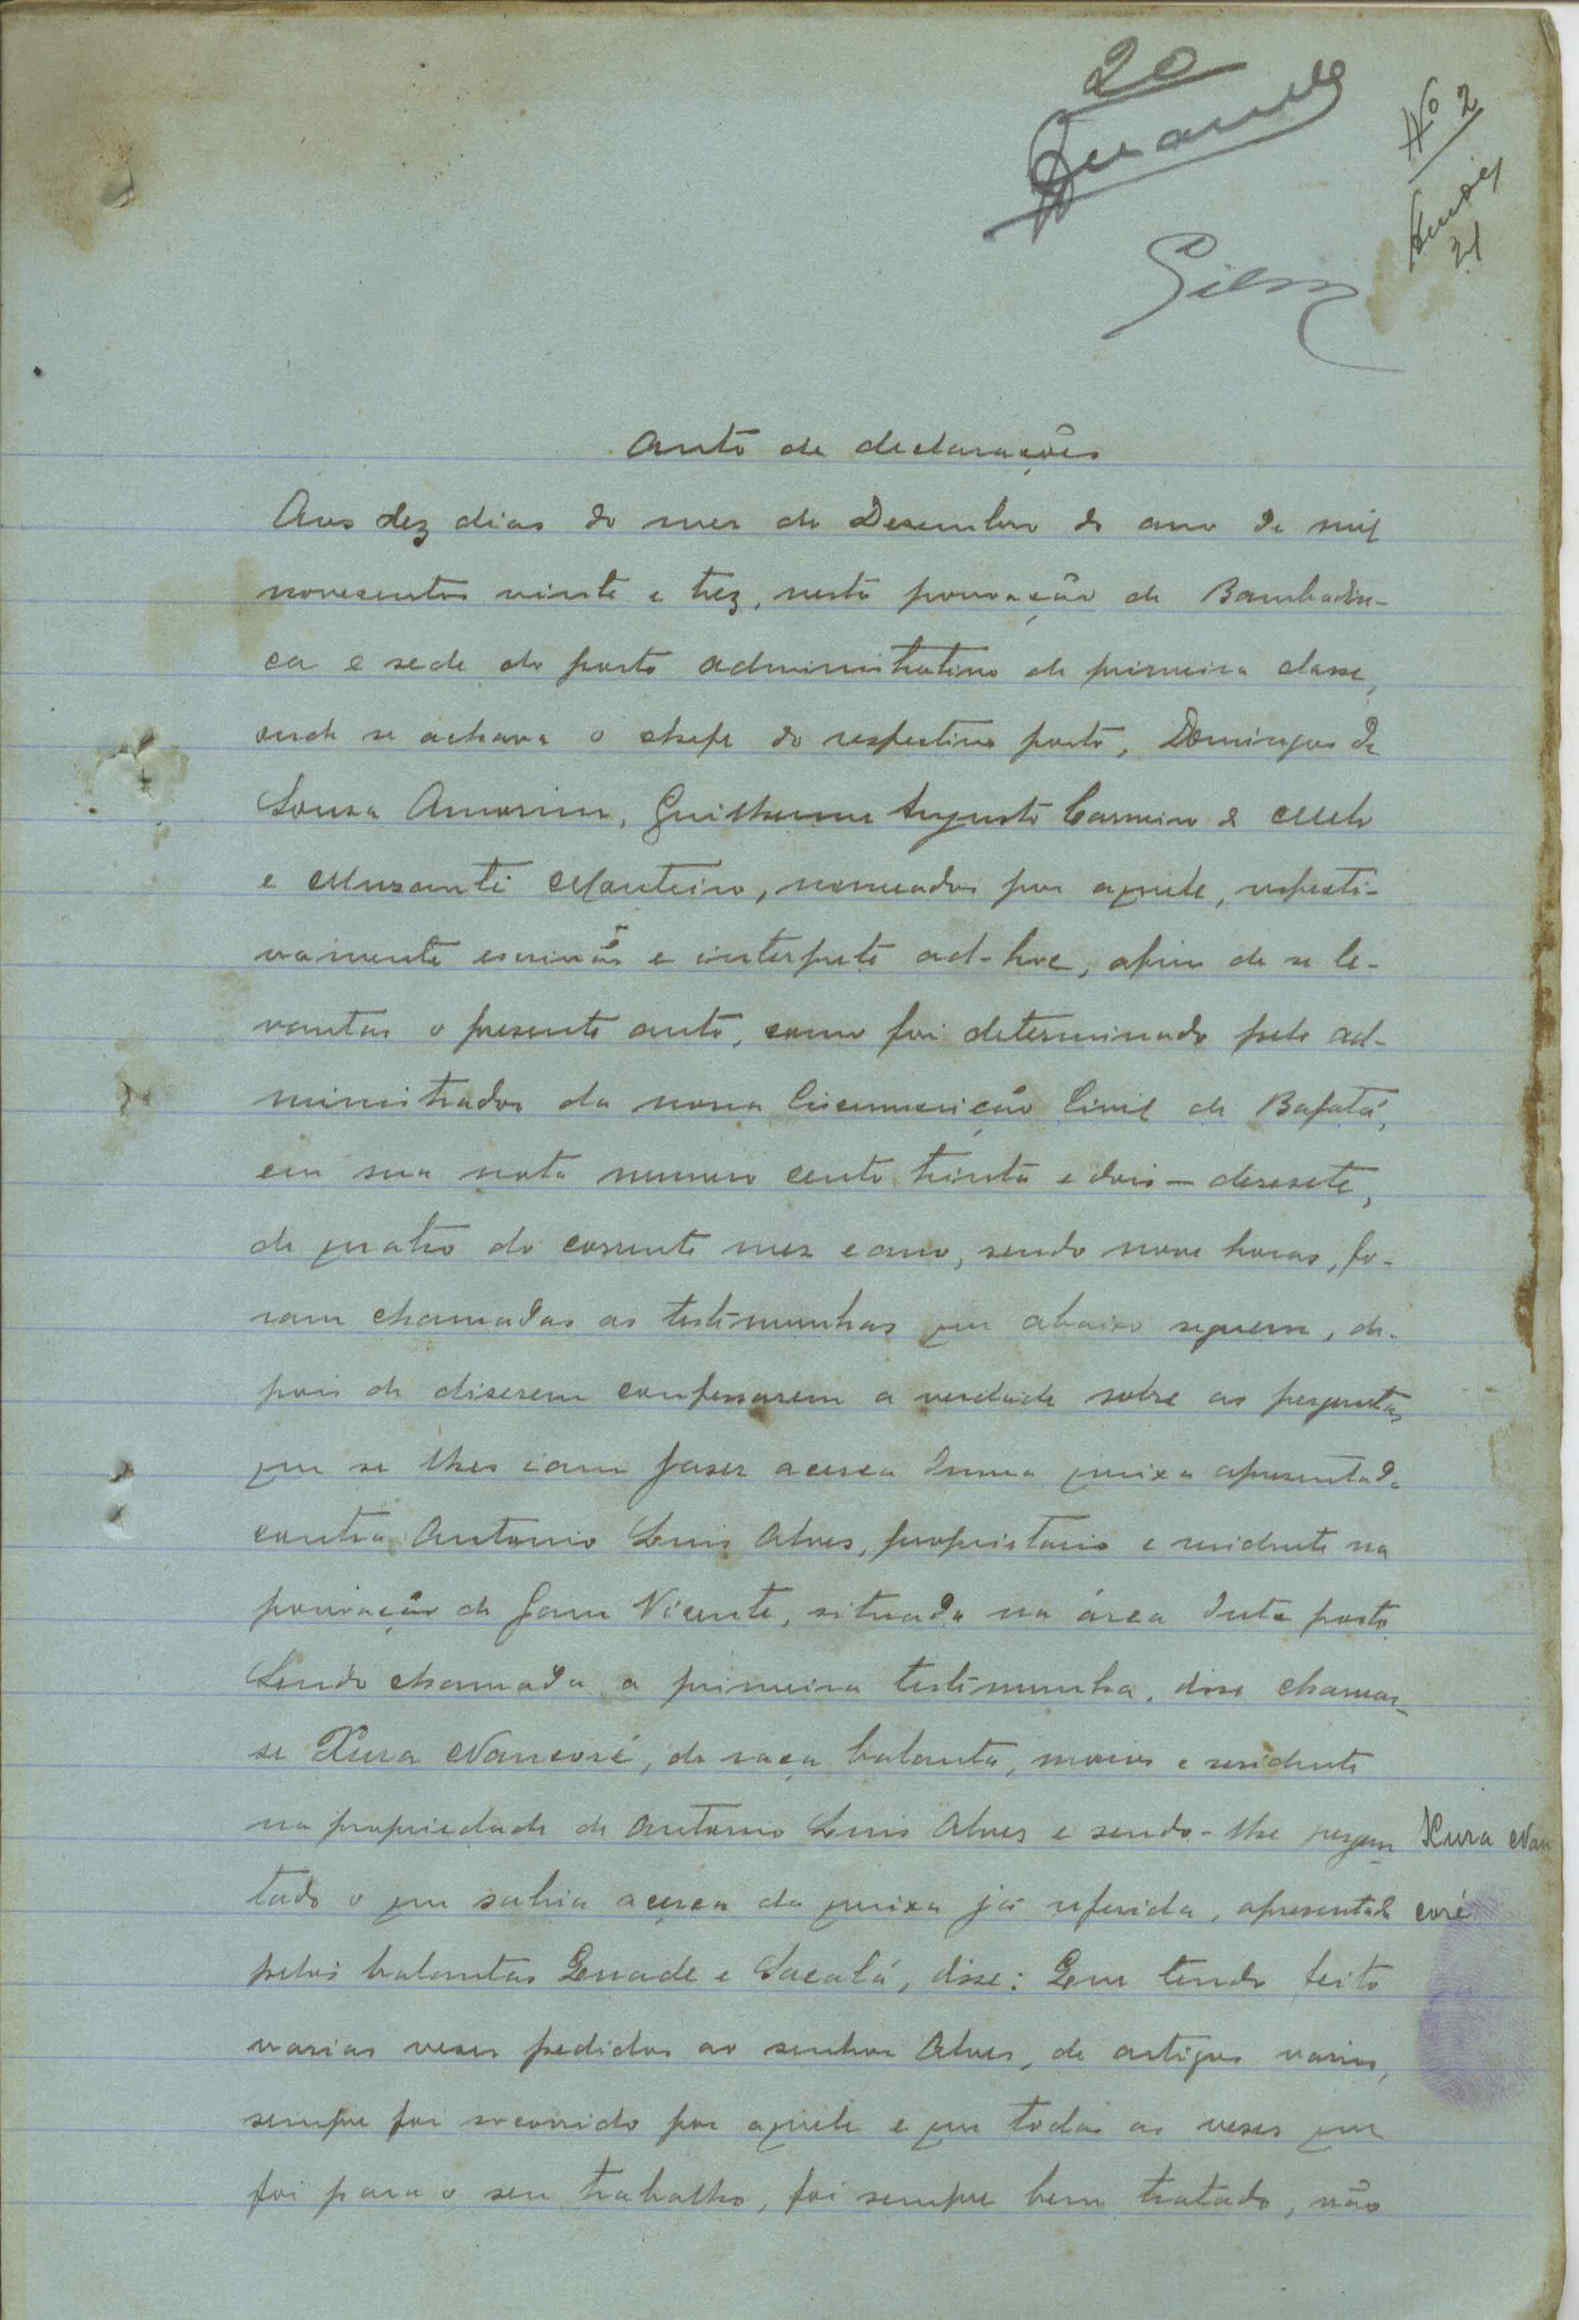 20
Nº 2
21
Auto de declarações
Aos dez dias do mez de Dezembro do ano de mil
novesentos vinte e trez, nesta povoação de Bambadin-
ca e sede do posto administrativo de primeira classe,
onde se achava o chefe do respectivo posto, Domingos de
Sousa Amorim, Guilherme Augusto Carneiro e Melo
e Musanti Monteiro, nomeados por aquele, respecti-
vamente escrivão e interprete ad-hoc, afim de se le-
vantar o presente auto, como foi determinado pelo ad-
ministrador da nossa Circunscrição Civil de Bafatá,
em sua nota numero cento trinta e dois — desesete,
de quatro do corrente mez e ano, sendo nove horas, fo-
ram chamadas as testimunhas que abaixo seguem, de-
pois de diserem confessarem a verdade sobre as perguntas
que se lhes iam faser acerca duma queixa apresentada
contra Antonio Luis Alves, proprietario e residente na
povoação de Gam Vicente, situada na área deste posto
Sendo chamada a primeira testimunha, disse chamar-
se Kura Nancoré, de raça balanta, maior e residente
na propriedade de Antonio Luis Alves e sendo-lhe pergun
tado o que sabia acerca da queixa já referida, apresentada
Kura Nan
coré
pelos balantas Quade e Sacalá, disse: Que tendo feito
varias veses pedidos ao senhor Alves, de artigos varios,
sempre foi socorrido por aquele e que todas as veses que
foi para o seu trabalho, foi sempre bem tratado, não